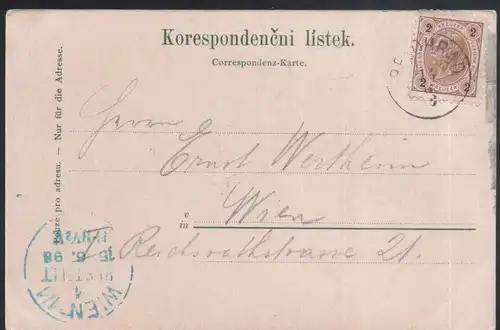 Korespondenčni lístek.
Correspondenz-Karte.
Pouze pro adresu. — Nur für die Adresse.
Herrn
Ernst Wertheim
v
in
Wien
I. Reichsrathsstrasse 21.
2 2
2 2
WIEN 1/1
1
BESTELLT
15. 6. 98